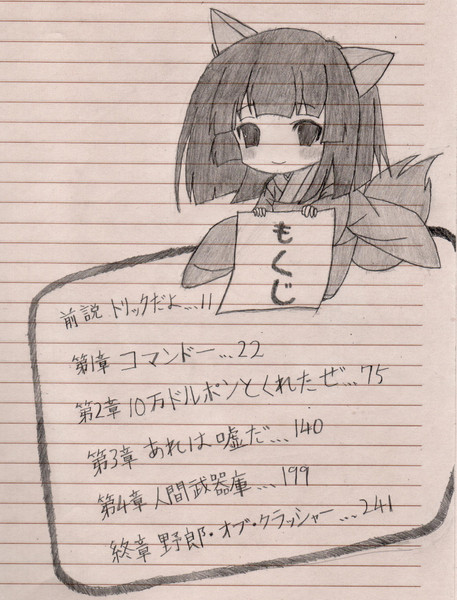 もくじ
前説 トリックだよ…11
第1章 コマンドー…22
第2章 10万ドルポンとくれたぜ…75
第3章 あれは嘘だ…140
第4章 人間武器庫…199
終章 野郎・オブ・クラッシャー…241